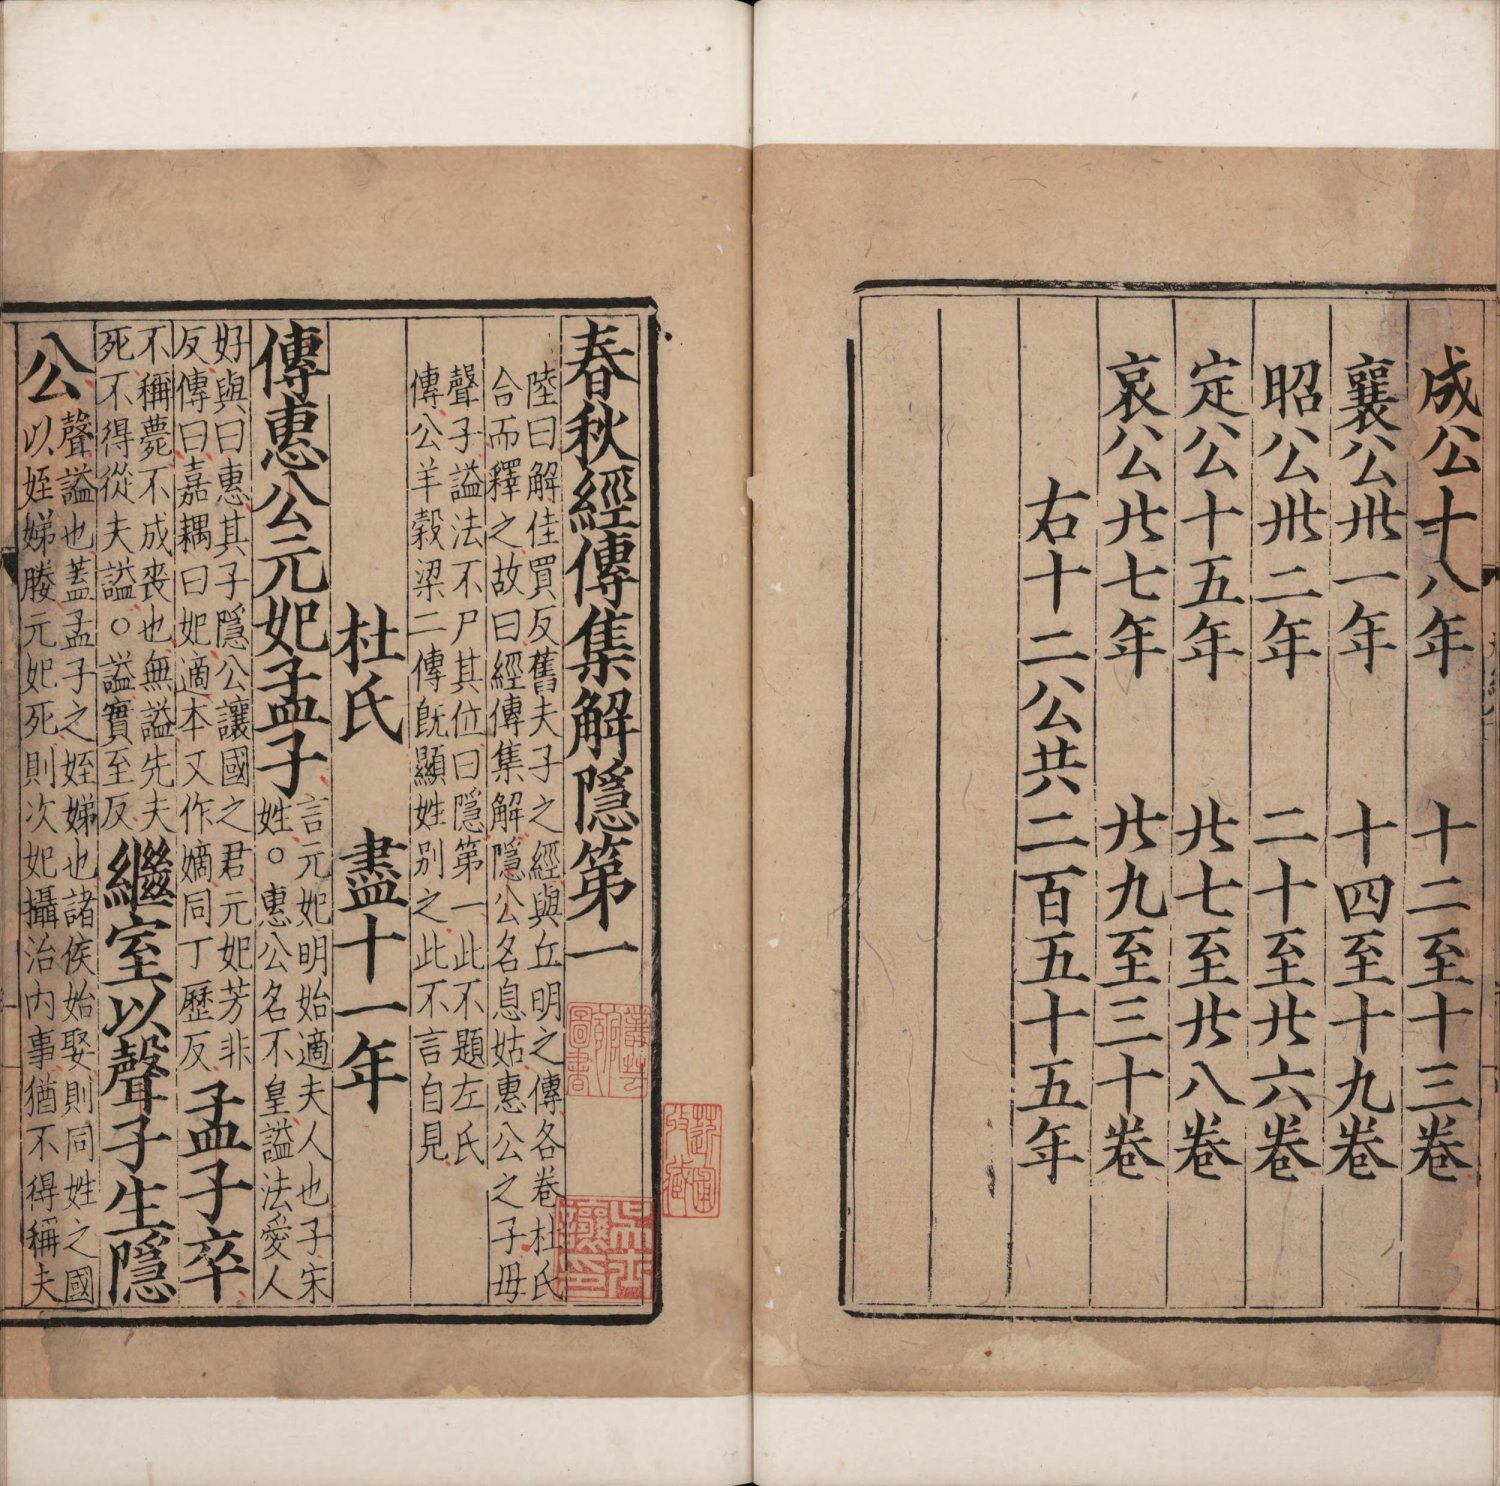 成公十八年 十二至十三卷
襄公卅一年 十四至十九卷
昭公卅二年 二十至廿六卷
定公十五年 廿七至廿八卷
哀公廿七年 廿九至三十卷
右十二公共二百五十五年
春秋經傳集解隱第一
陸曰解佳買反舊夫子之經與丘明之傳各卷杜氏
合而釋之故曰經傳集解隱公名息姑惠公之子母
聲子謚法不尸其位曰隱第一此不題左氏
傳公羊穀梁二傳旣顯姓别之此不言自見
杜氏 盡十一年
傳惠公元妃孟子
言元妃明始適夫人也子宋
姓○惠公名不皇謚法愛人
好與曰惠其子隱公讓國之君元妃芳非
反傳曰嘉耦曰妃適本又作嫡同丁歷反
孟子卒
不稱薨不成喪也無謚先夫
死不得從夫謚○謚實至反
繼室以聲子生隱
公
聲謚也蓋孟子之姪娣也諸侯始娶則同姓之國
以姪娣媵元妃死則次妃攝治内事猶不得稱夫